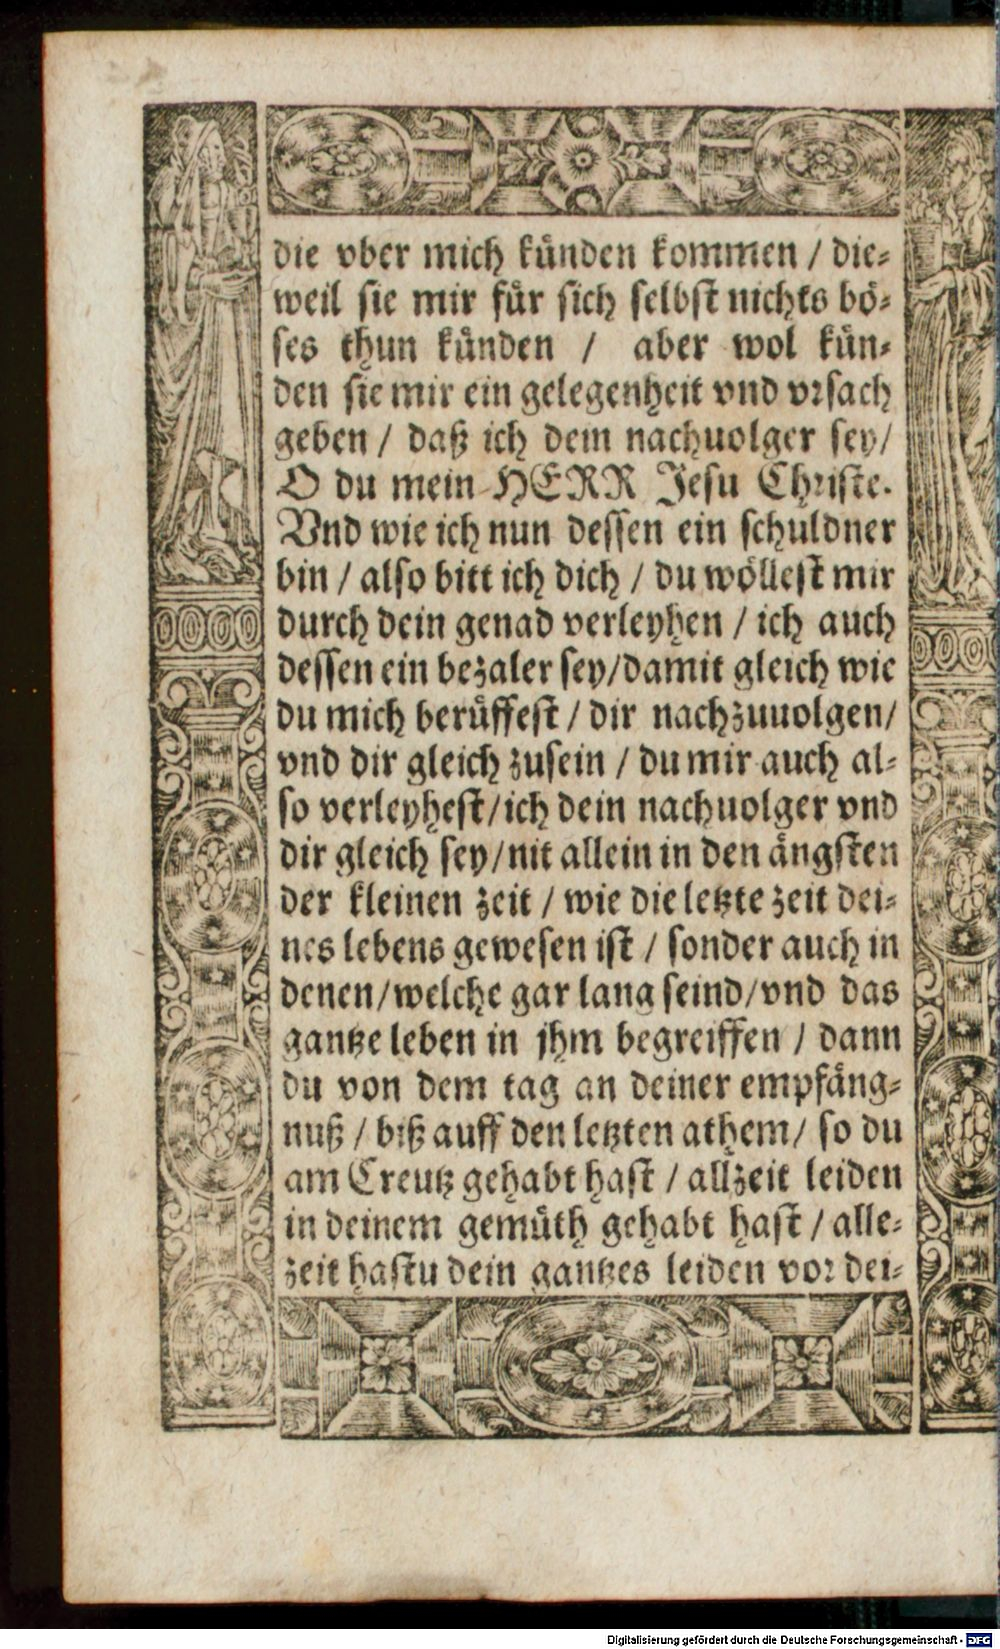 die vber mich künden kommen / die⸗
weil sie mir für sich selbst nichts bö⸗
ses thun künden / aber wol kün⸗
den sie mir ein gelegenheit vnd vrsach
geben / daß ich dem nachuolger sey/
O du mein HERR Jesu Christe.
Vnd wie ich nun dessen ein schuldner
bin / also bitt ich dich / du wöllest mir
durch dein genad verleyhen / ich auch
dessen ein bezaler sey/damit gleich wie
du mich berüffest / dir nachzuuolgen/
vnd dir gleich zusein / du mir auch al⸗
so verleyhest/ich dein nachuolger vnd
dir gleich sey/nit allein in den ängsten
der kleinen zeit / wie die letzte zeit dei⸗
nes lebens gewesen ist / sonder auch in
denen/welche gar lang seind/vnd das
gantze leben in jhm begreiffen / dann
du von dem tag an deiner empfäng⸗
nuß / biß auff den letzten athem/ so du
am Creutz gehabt hast / allzeit leiden
in deinem gemüth gehabt hast / alle⸗
zeit hastu dein gantzes leiden vor dei⸗
Digitalisierung gefördert durch die Deutsche Forschungsgemeinschaft - DFG